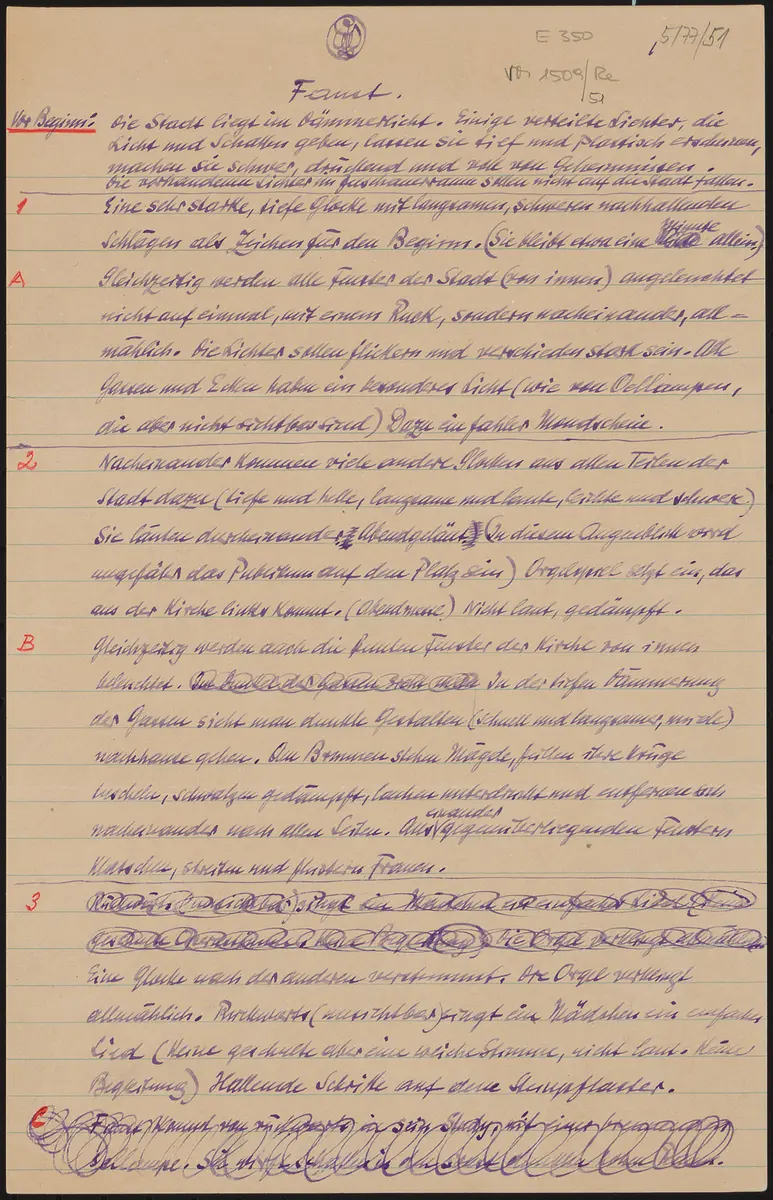 E 350
5/77/51
1509/Re
51
Faust.
Vor Beginn: Die Stadt liegt im Dämmerlicht. Einige verteilte Lichter, die
Licht und Schatten geben, lassen sie tief und plastisch erscheinen,
machen sie schwer, drückend und voll von Geheimnissen.
Die vorhandenen Lichter im Zuschauerraum sollen nicht auf die Stadt fallen.
1 Eine sehr starke, tiefe Glocke mit langsamen, schweren nachhallenden
Schlägen als Zeichen für den Beginn. (Sie bleibt etwa eine Minute allein.)
A Gleichzeitig werden alle Fenster der Stadt (von innen) angeleuchtet
nicht auf einmal, mit einem Ruck, sondern nacheinander, all =
mählich. Die Lichter sollen flickern und verschieden stark sein. Alle
Gassen und Ecken haben ein besonderes Licht (wie von Oellampen,
die aber nicht sichtbar sind) Dazu ein fahler Mondschein.
2 Nacheinander kommen viele andere Glocken aus allen Teilen der
Stadt dazu (tiefe und helle, langsame und laute, leichte und schwere)
Sie läuten durcheinander. Abendgeläut. (In diesem Augenblick wird
ungefähr das Publikum auf dem Platz sein) Orgelspiel setzt ein, das
aus der Kirche links kommt. (Abendmesse) Nicht laut, gedämpft.
B Gleichzeitig werden auch die bunten Fenster der Kirche von innen
beleuchtet. In der tiefen Dämmerung
der Gassen sieht man dunkle Gestalten (schnell und langsamer, müde)
nachhause gehen. Am Brunnen stehen Mägde, füllen ihre Krüge
tuscheln, schwatzen gedämpft, lachen unterdrückt und entfernen sich
nacheinander nach allen Seiten. Aus einander gegenüberliegenden Fenstern
klatschen, streiten und flüstern Frauen.
3 singt ein Mädchen ein einfaches Lied
Die Orgel verklingt
Eine Glocke nach der anderen verstummt. Die Orgel verklingt
allmählich. Rückwärts (unsichtbar) singt ein Mädchen ein einfaches
Lied (Keine geschulte aber eine weiche Stimme, nicht laut. Keine
Begleitung) Hallende Schritte auf dem Steinpflaster.
C Faust kommt von rückwärts in sein Study, mit einer brennenden
Oellampe.